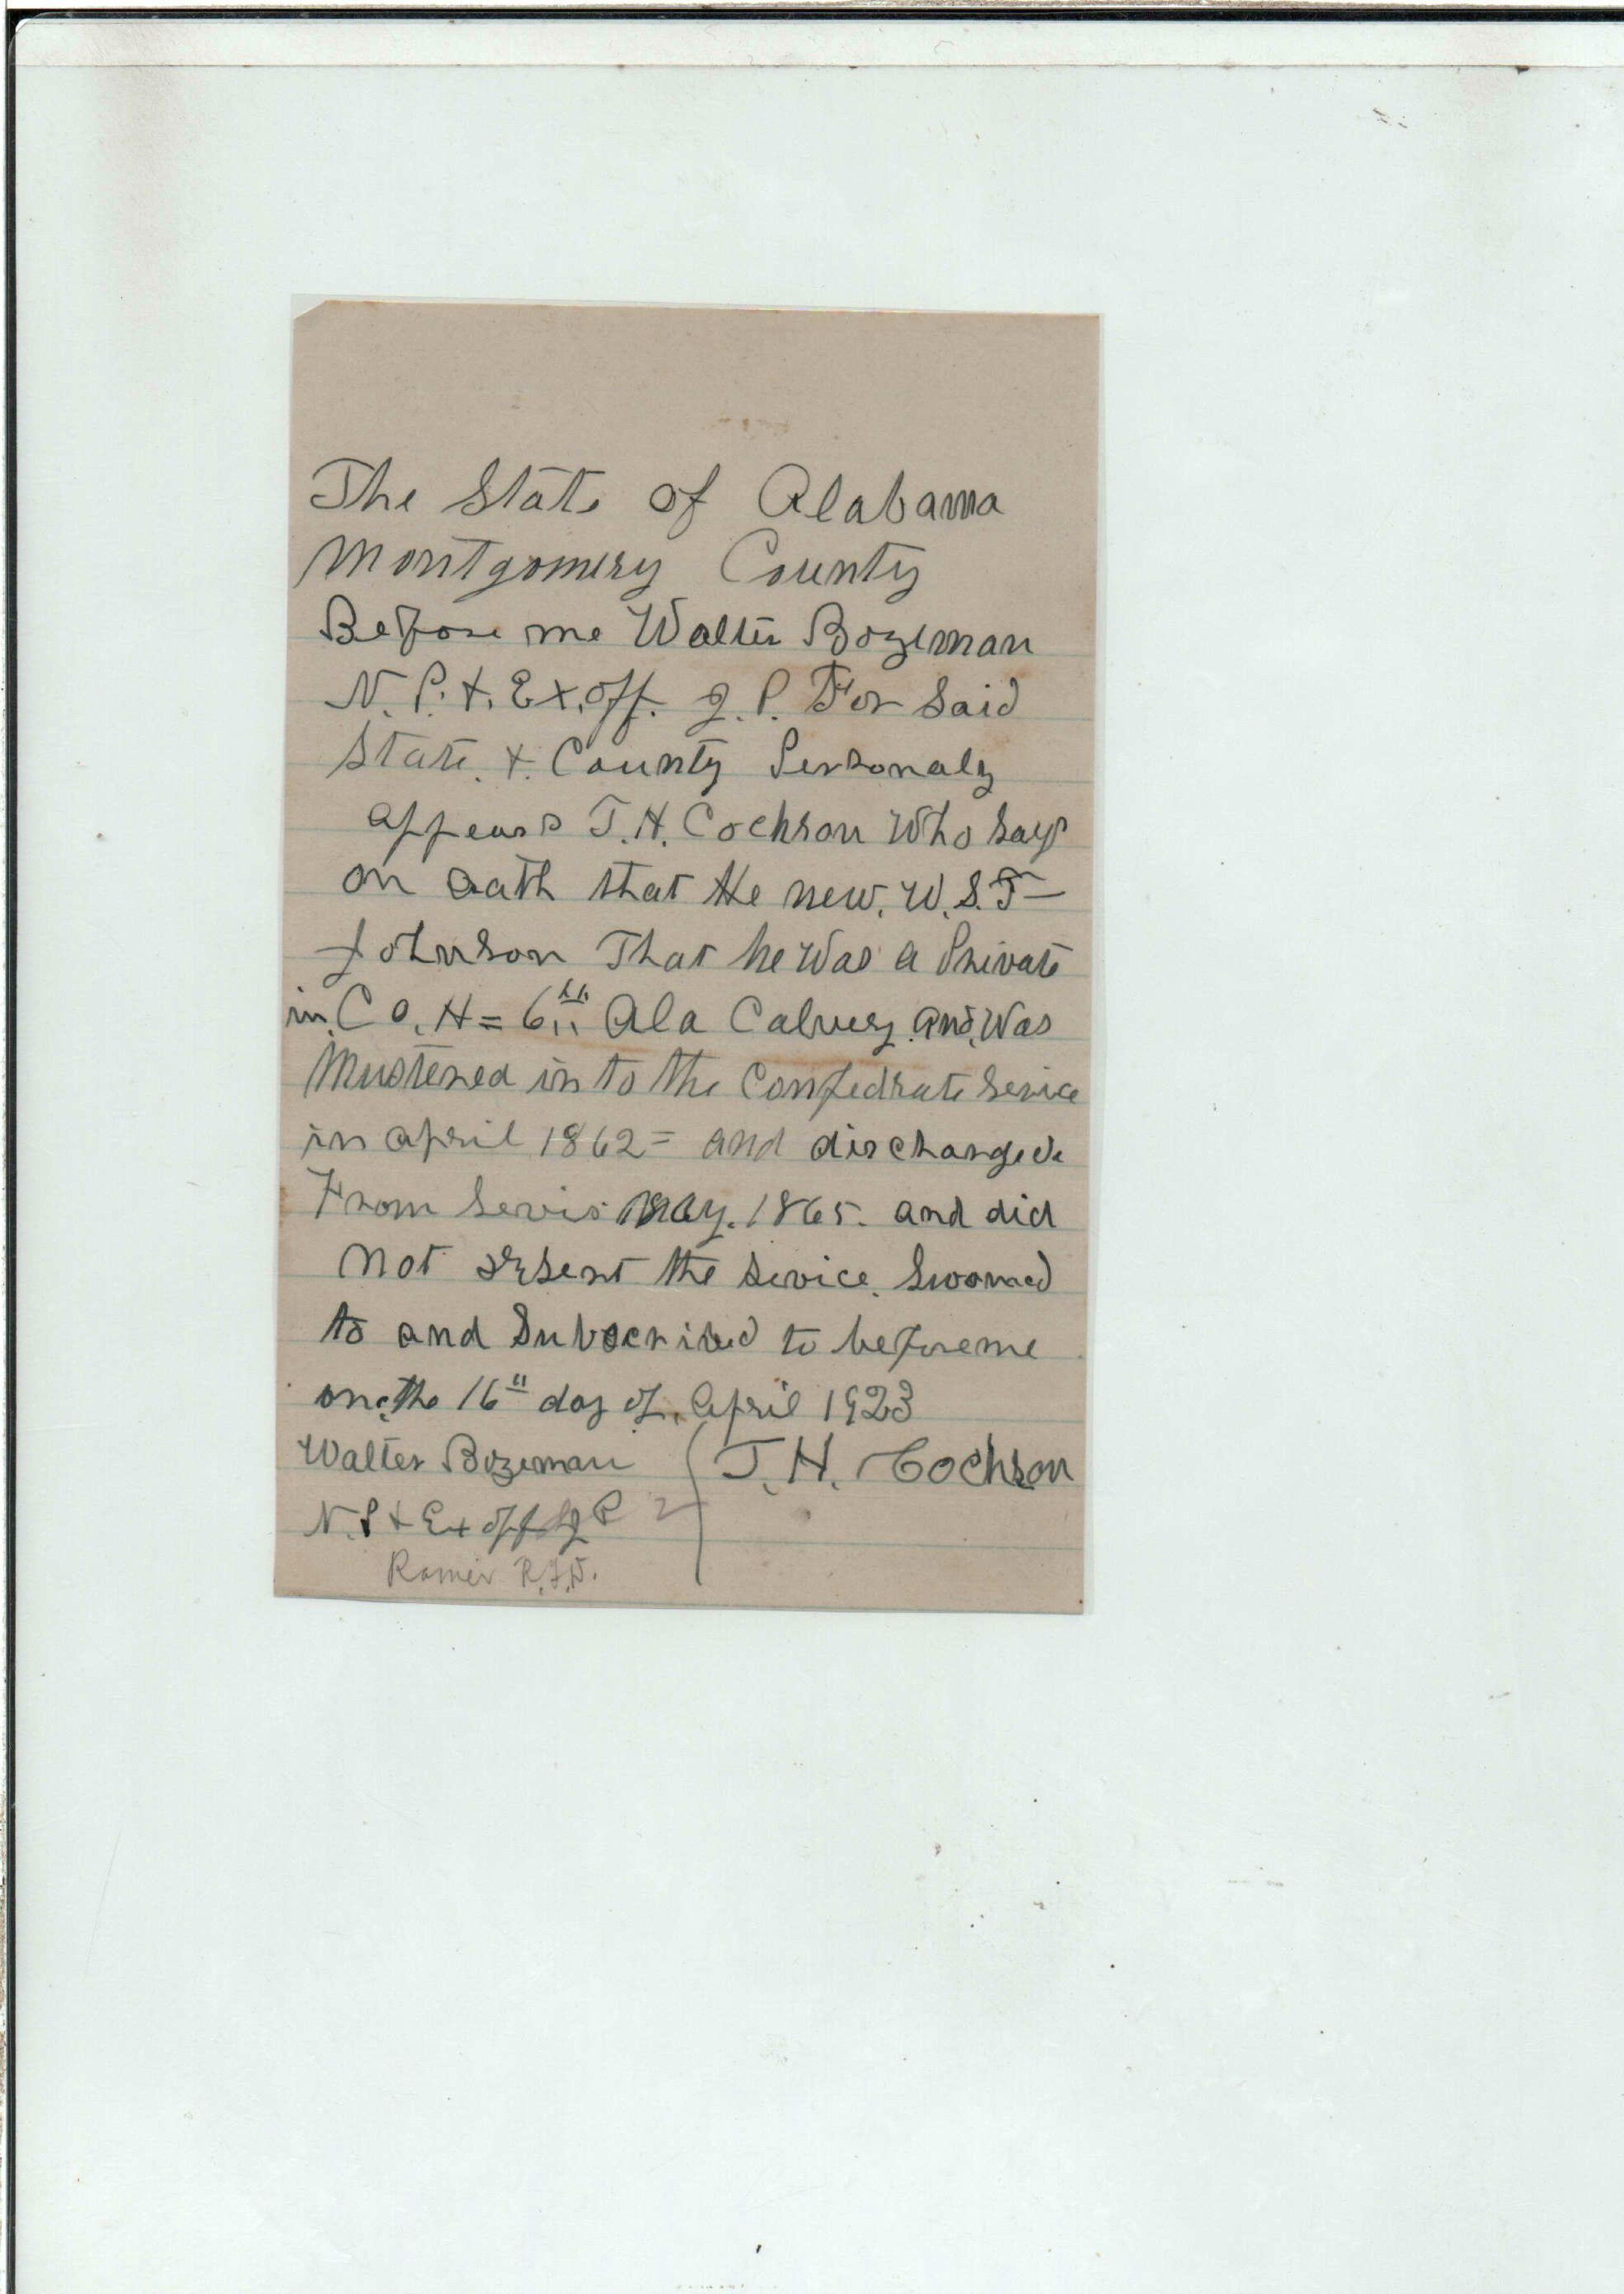 The State of Alabama
Montgomery County
Before me Walter Bozeman
N. P. &. Ex. off. J. P. For Said
State. &. County Personaly
appears T. H. Cochron Who says
on oath that He new. W. S. T-
Johnson That he Was a Private
in. CO. H = 6" Ala Calvery. and. Was
Mustered in to the Confedrate Service
in april 1862 = and discharged.
From Servis May. 1865. and did
not the Service. Swoorned
to and Subscribed to before me
on. the 16" day of. April 1923
Walter Bozeman ( T. H. Cochron
N. P & Ex off J P
Ramer R. F. D.